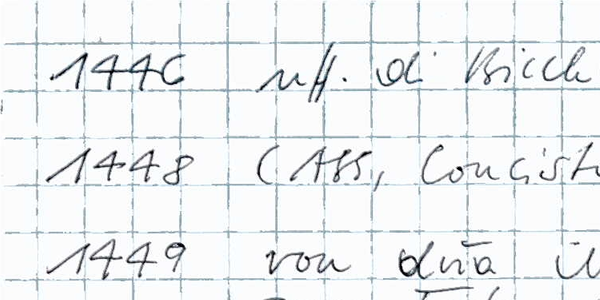 1446 uff. di Bicch
1448 (ASS, Concist
1449 von